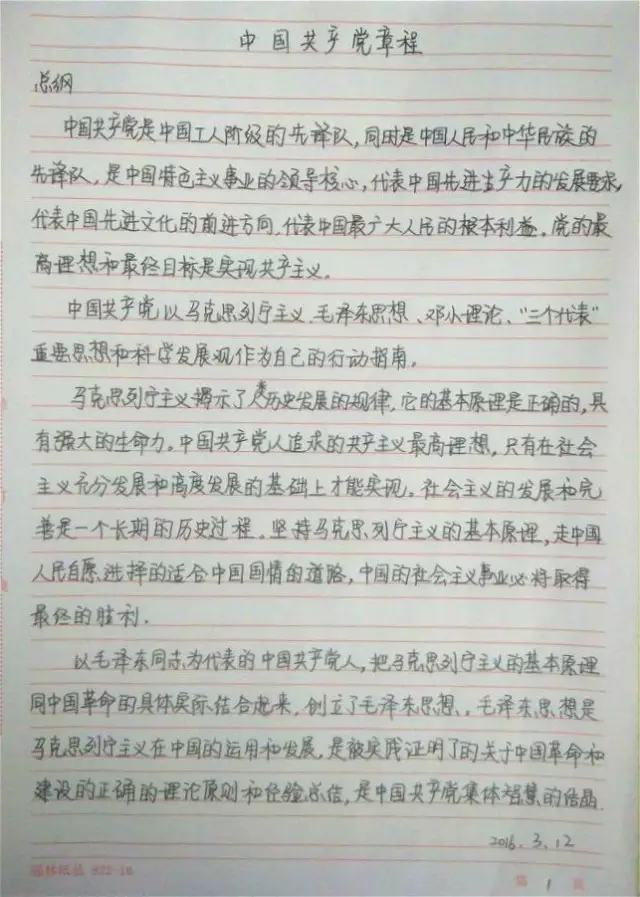 中国共产党章程
总纲
中国共产党是中国工人阶级的先锋队，同时是中国人民和中华民族的
先锋队，是中国特色主义事业的领导核心，代表中国先进生产力的发展要求，
代表中国先进文化的前进方向，代表中国最广大人民的根本利益。党的最
高理想和最终目标是实现共产主义。
中国共产党以马克思列宁主义、毛泽东思想、邓小理论、“三个代表”
重要思想和科学发展观作为自己的行动指南。
马克思列宁主义揭示了人类历史发展的规律，它的基本原理是正确的，具
有强大的生命力。中国共产党人追求的共产主义最高理想，只有在社会
主义充分发展和高度发展的基础上才能实现。社会主义的发展和完
善是一个长期的历史过程。坚持马克思列宁主义的基本原理，走中国
人民自愿选择的适合中国国情的道路，中国的社会主义事业必将取得
最终的胜利。
以毛泽东同志为代表的中国共产党人，把马克思列宁主义的基本原理
同中国革命的具体实际结合起来，创立了毛泽东思想。毛泽东思想是
马克思列宁主义在中国的运用和发展，是被实践证明了的关于中国革命和
建设的正确的理论原则和经验总结，是中国共产党集体智慧的结晶.
2016.3.12
第 1 页